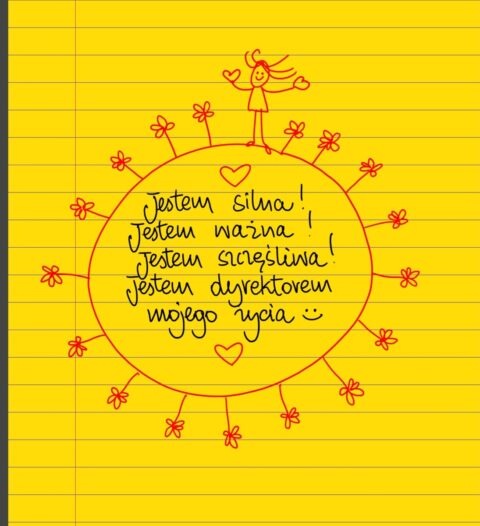 Jestem silna!
Jestem ważna!
Jestem szczęśliwa!
Jestem dyrektorem
mojego życia